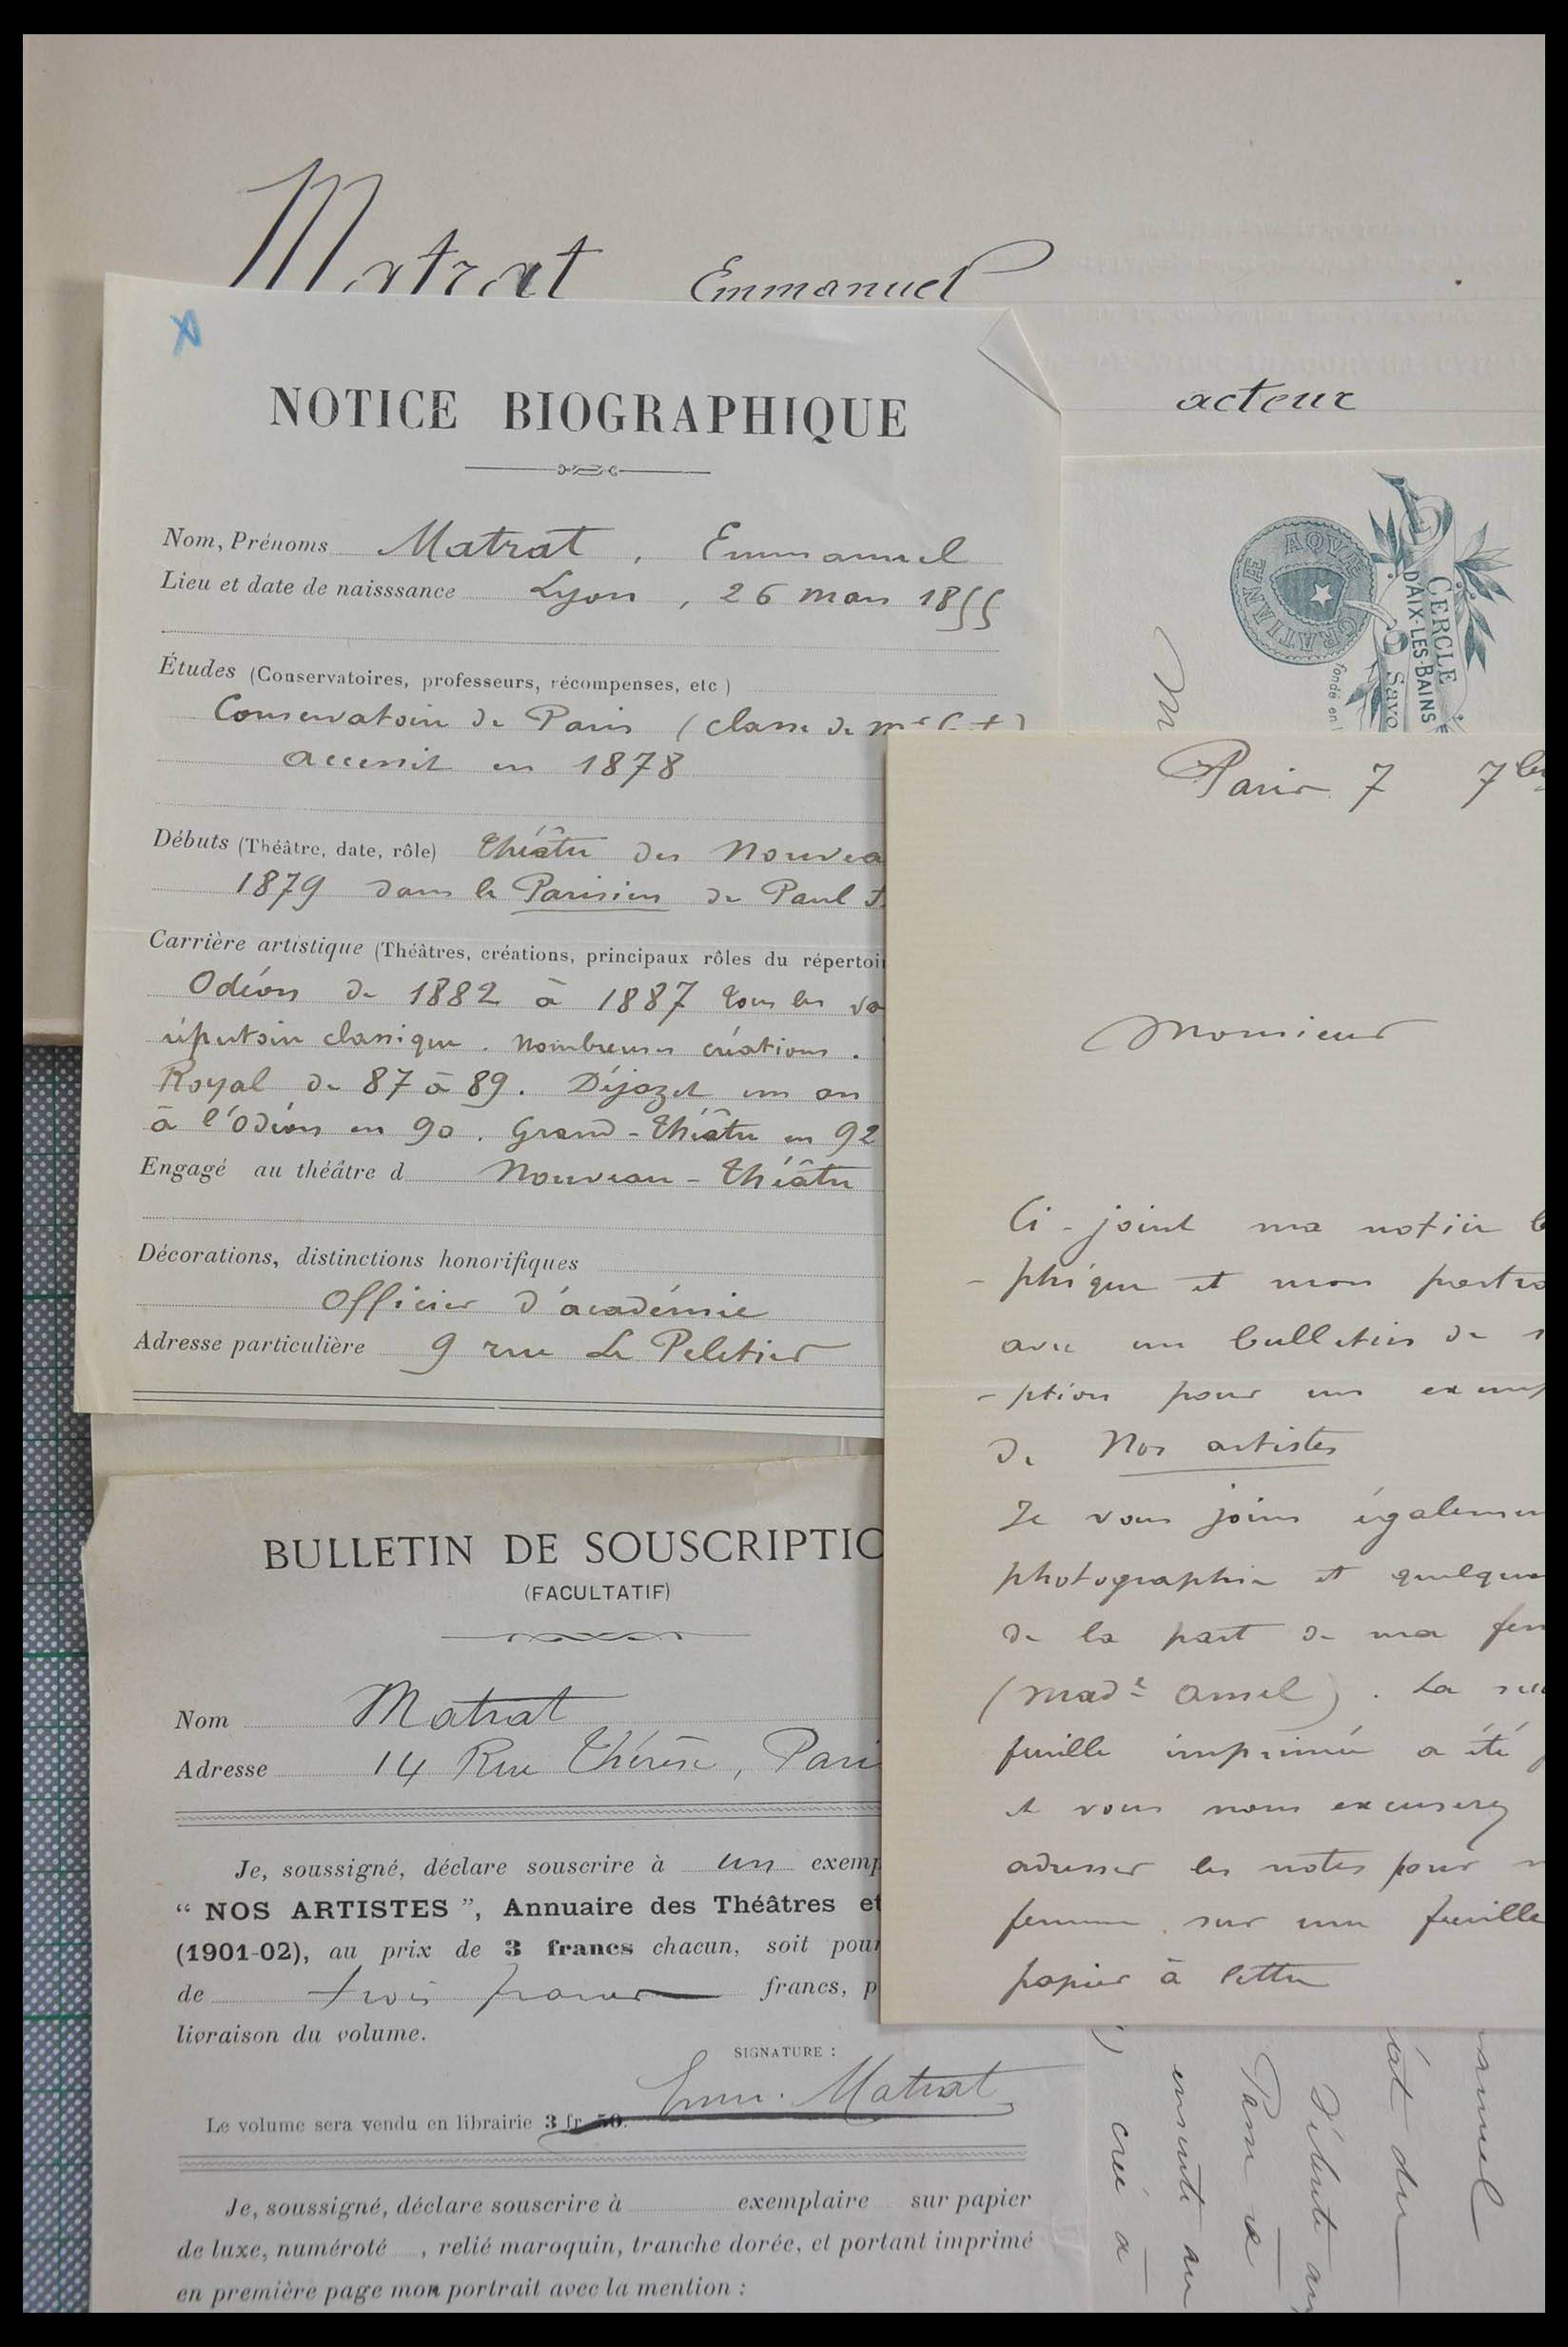 Matrat Emmanuel
acteur
NOTICE BIOGRAPHIQUE
Nom, Prénoms Matrat, Emmanuel
Lieu et date de naisssance Lyon, 26 mars 1855
Études (Conservatoires, professeurs, récompenses, etc)
Conservatoire de Paris (classe de
accessit en 1878
Débuts (Théâtre, date, rôle) Théâtre des Nouvea
1879 dans le Parisien de Paul
Carrière artistique (Théâtres, créations, principaux rôles du répertoi
Odéon de 1882 à 1887 tous les va
répertoire classique. nombreuses créations.
Royal de 87 à 89. Déjazet un an
à l'Odéon en 90. Grand-Théâtre en 92
Engagé au théâtre d Nouveau-Théâtre
Décorations, distinctions honorifiques
Officier d'académie
Adresse particulière 9 rue Le Peletier
BULLETIN DE SOUSCRIPTIO
(FACULTATIF)
Nom Matrat
Adresse 14 Rue Thérèse, Pari
Je, soussigné, déclare souscrire à un exemp
“ NOS ARTISTES ”, Annuaire des Théâtres et
(1901-02), au prix de 3 francs chacun, soit pour
de trois francs francs, p
livraison du volume.
SIGNATURE :
Emm. Matrat
Le volume sera vendu en librairie 3 fr. 50.
Je, soussigné, déclare souscrire à exemplaire sur papier
de luxe, numéroté , relié maroquin, tranche dorée, et portant imprimé
en première page mon portrait avec la mention :
AQVÆ GRATIANÆ
CERCLE
D'AIX-LES-BAINS
Savo
fondé en
Paris 7 7bre
Monsieur
Ci-joint ma notice b
-phique et mon portra
avec un bulletin de s
-ption pour un exemp
de Nos artistes
Je vous joins égalemen
photographie et quelques
de la part de ma fem
(made Amel). La
feuille imprimée a été
et vous nous excuserez
adresser les notes pour m
femme sur une feuille
papier à lettre
anuel
at du
Débute au
Paris &
ensuite au
créé à